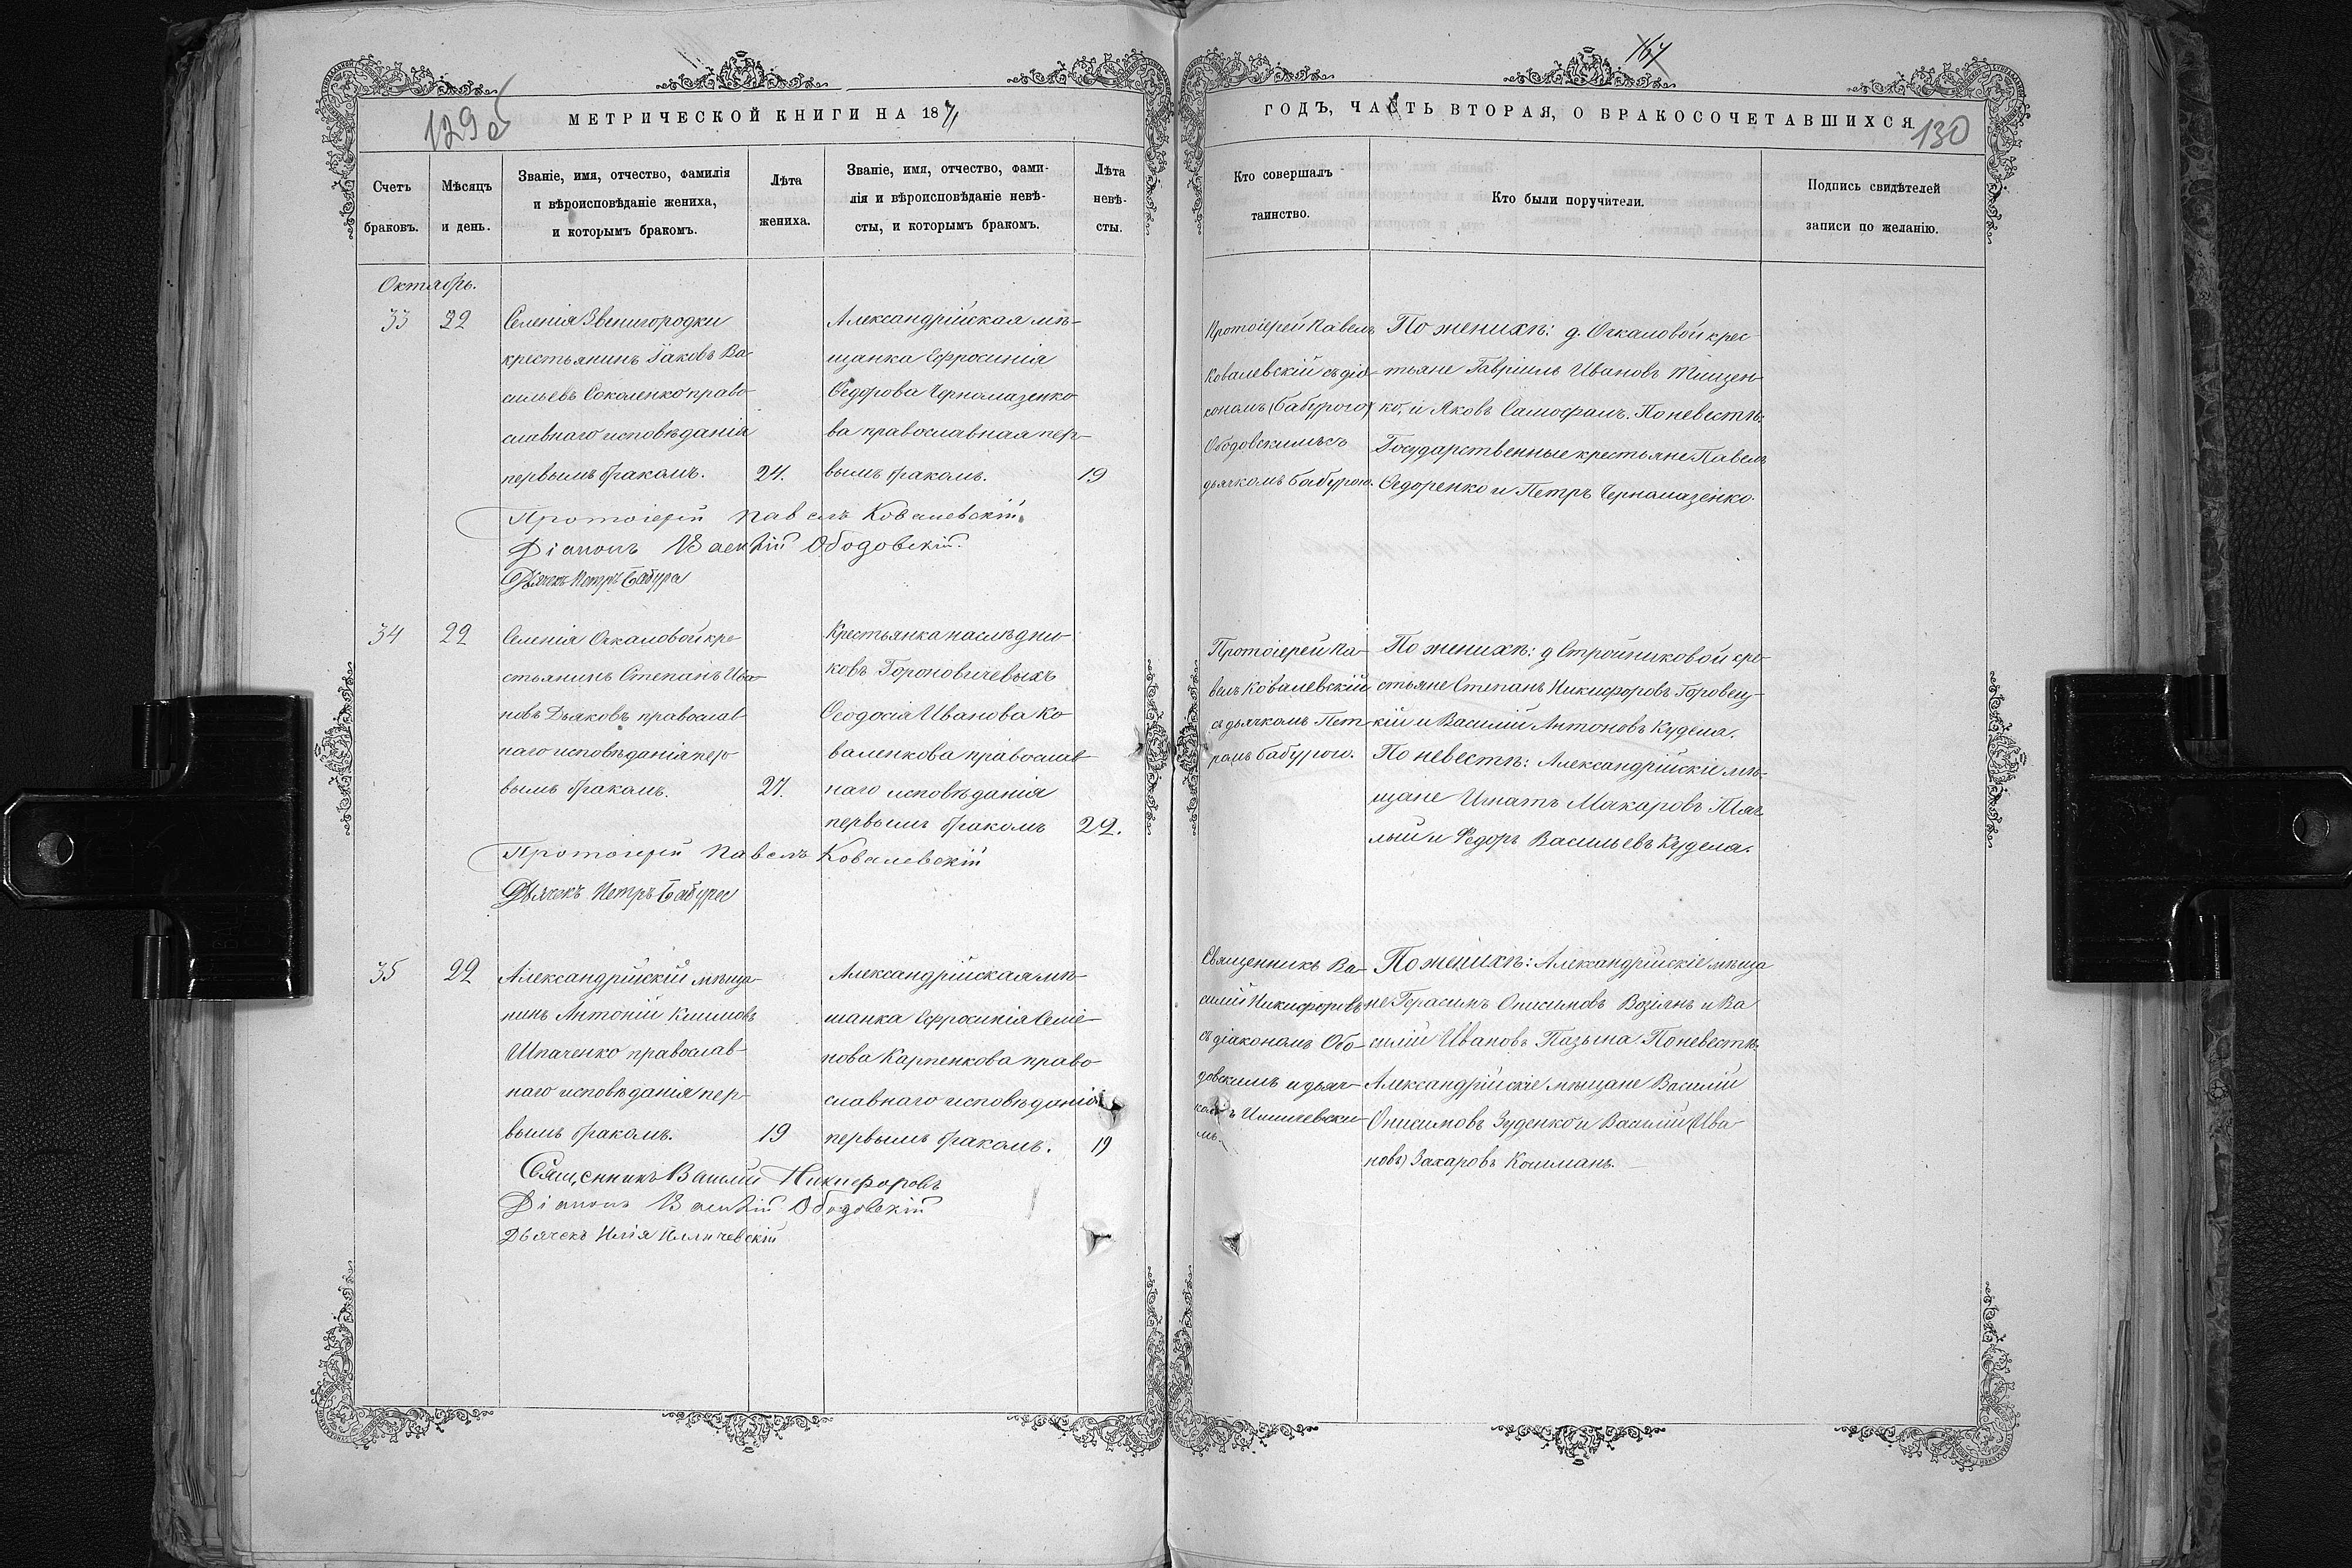 129 об
МЕТРИЧЕСКОЙ КНИГИ НА 1871
Счетъ
браковъ.
Мѣсяцъ
и день.
Званіе, имя, отчество, фамилія
и вѣроисповѣданіе жениха,
и которымъ бракомъ.
Лѣта
жениха.
Званіе, имя, отчество, фами-
лія и вѣроисповѣданіе невѣ-
сты, и которымъ бракомъ.
Лѣта
невѣ-
сты.
Октябрь.
33
22
Селенія Звенигородки
крестьянинъ Іаковъ Ва
сильевъ Соколенко право
славнаго исповѣданія
первымъ бракомъ.
24.
Александрійская мѣ-
щанка Ефросинія
Ѳедорова Черномазенко
ва православная пер-
вымъ бракомъ.
19
Протоіерей Павелъ Ковалевскій.
Діаконъ Василій Ободовскій.
Дьячекъ Петръ Бабура
34
22
Селенія Очкаловой кре
стьянинъ Степанъ Ива-
новъ Дьяковъ православ
наго исповѣданія пер
вымъ бракомъ.
27.
Крестьянка наслѣдни
ковъ Гороновичевыхъ
Ѳеодосія Иванова Ко
валенкова православ
наго исповѣданія
первымъ бракомъ
22.
Протоіерей Павелъ Ковалевскій
Дьячекъ Петръ Бабура
35
22
Александрійскій мѣща-
нинъ Антоній Климовъ
Шпаченко православ-
наго исповѣданія пер-
вымъ бракомъ.
19
Александрійская мѣ-
щанка Ефросинія Семіе-
нова Карпенкова право
славнаго исповѣданія
первымъ бракомъ.
19
Священникъ Василій Никифоровъ
Діаконъ Василій Ободовскій
Дьячекъ Илія Илличевскій
167
130
ГОДЪ, ЧАСТЬ ВТОРАЯ, О БРАКОСОЧЕТАВШИХСЯ
Кто совершалъ
таинство.
Кто были поручители.
Подпись свидѣтелей
записи по желанію.
Протоіерей Павелъ
Ковалевскій съ діа-
кономъ (Бабурою)
Ободовскимъ съ
дьячкомъ Бабурою.
По женихѣ: д. Очкаловой крес
тьяне Гавріилъ Ивановъ Тищен-
ко, и Яковъ Самофалъ. По невестѣ:
Государственные крестьяне Павелъ
Ѳедоренко и Петръ Черномазенко.
Протоіерей Па-
велъ Ковалевскій
съ дьячкомъ Пет-
ромъ Бабурою.
По женихѣ: д Стройниковой кре-
стьяне Степанъ Никифоровъ Горовец-
кій и Василій Антоновъ Кудела.
По невестѣ: Александрійскіе мѣ-
щане Игнатъ Макаровъ
и Федоръ Васильевъ Кудела.
Священникъ Ва-
силій Никифоровъ
съ діакономъ Обо-
довскимъ и дьяч-
комъ Илличевски-
мъ.
По женихѣ: Александрійскіе мѣща
не Герасимъ Онисимовъ Возіянъ и Ва
силій Ивановъ По невестѣ
Александрійскіе мѣщане Василій
Онисимовъ Зуденко и Василій (Ива
новъ) Захаровъ Кошманъ.